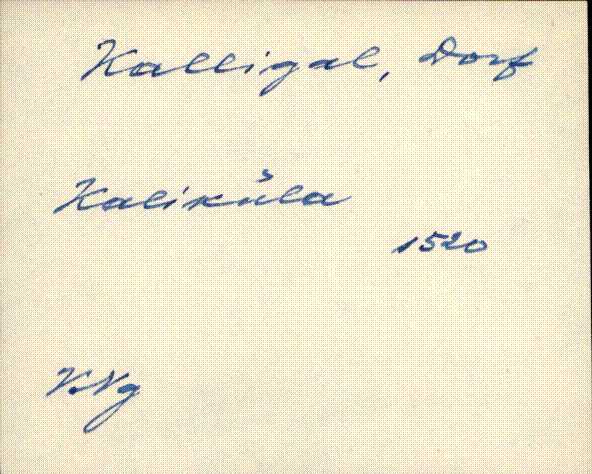 Kalligal, Dorf
Kaliküla
1520
V.Ng